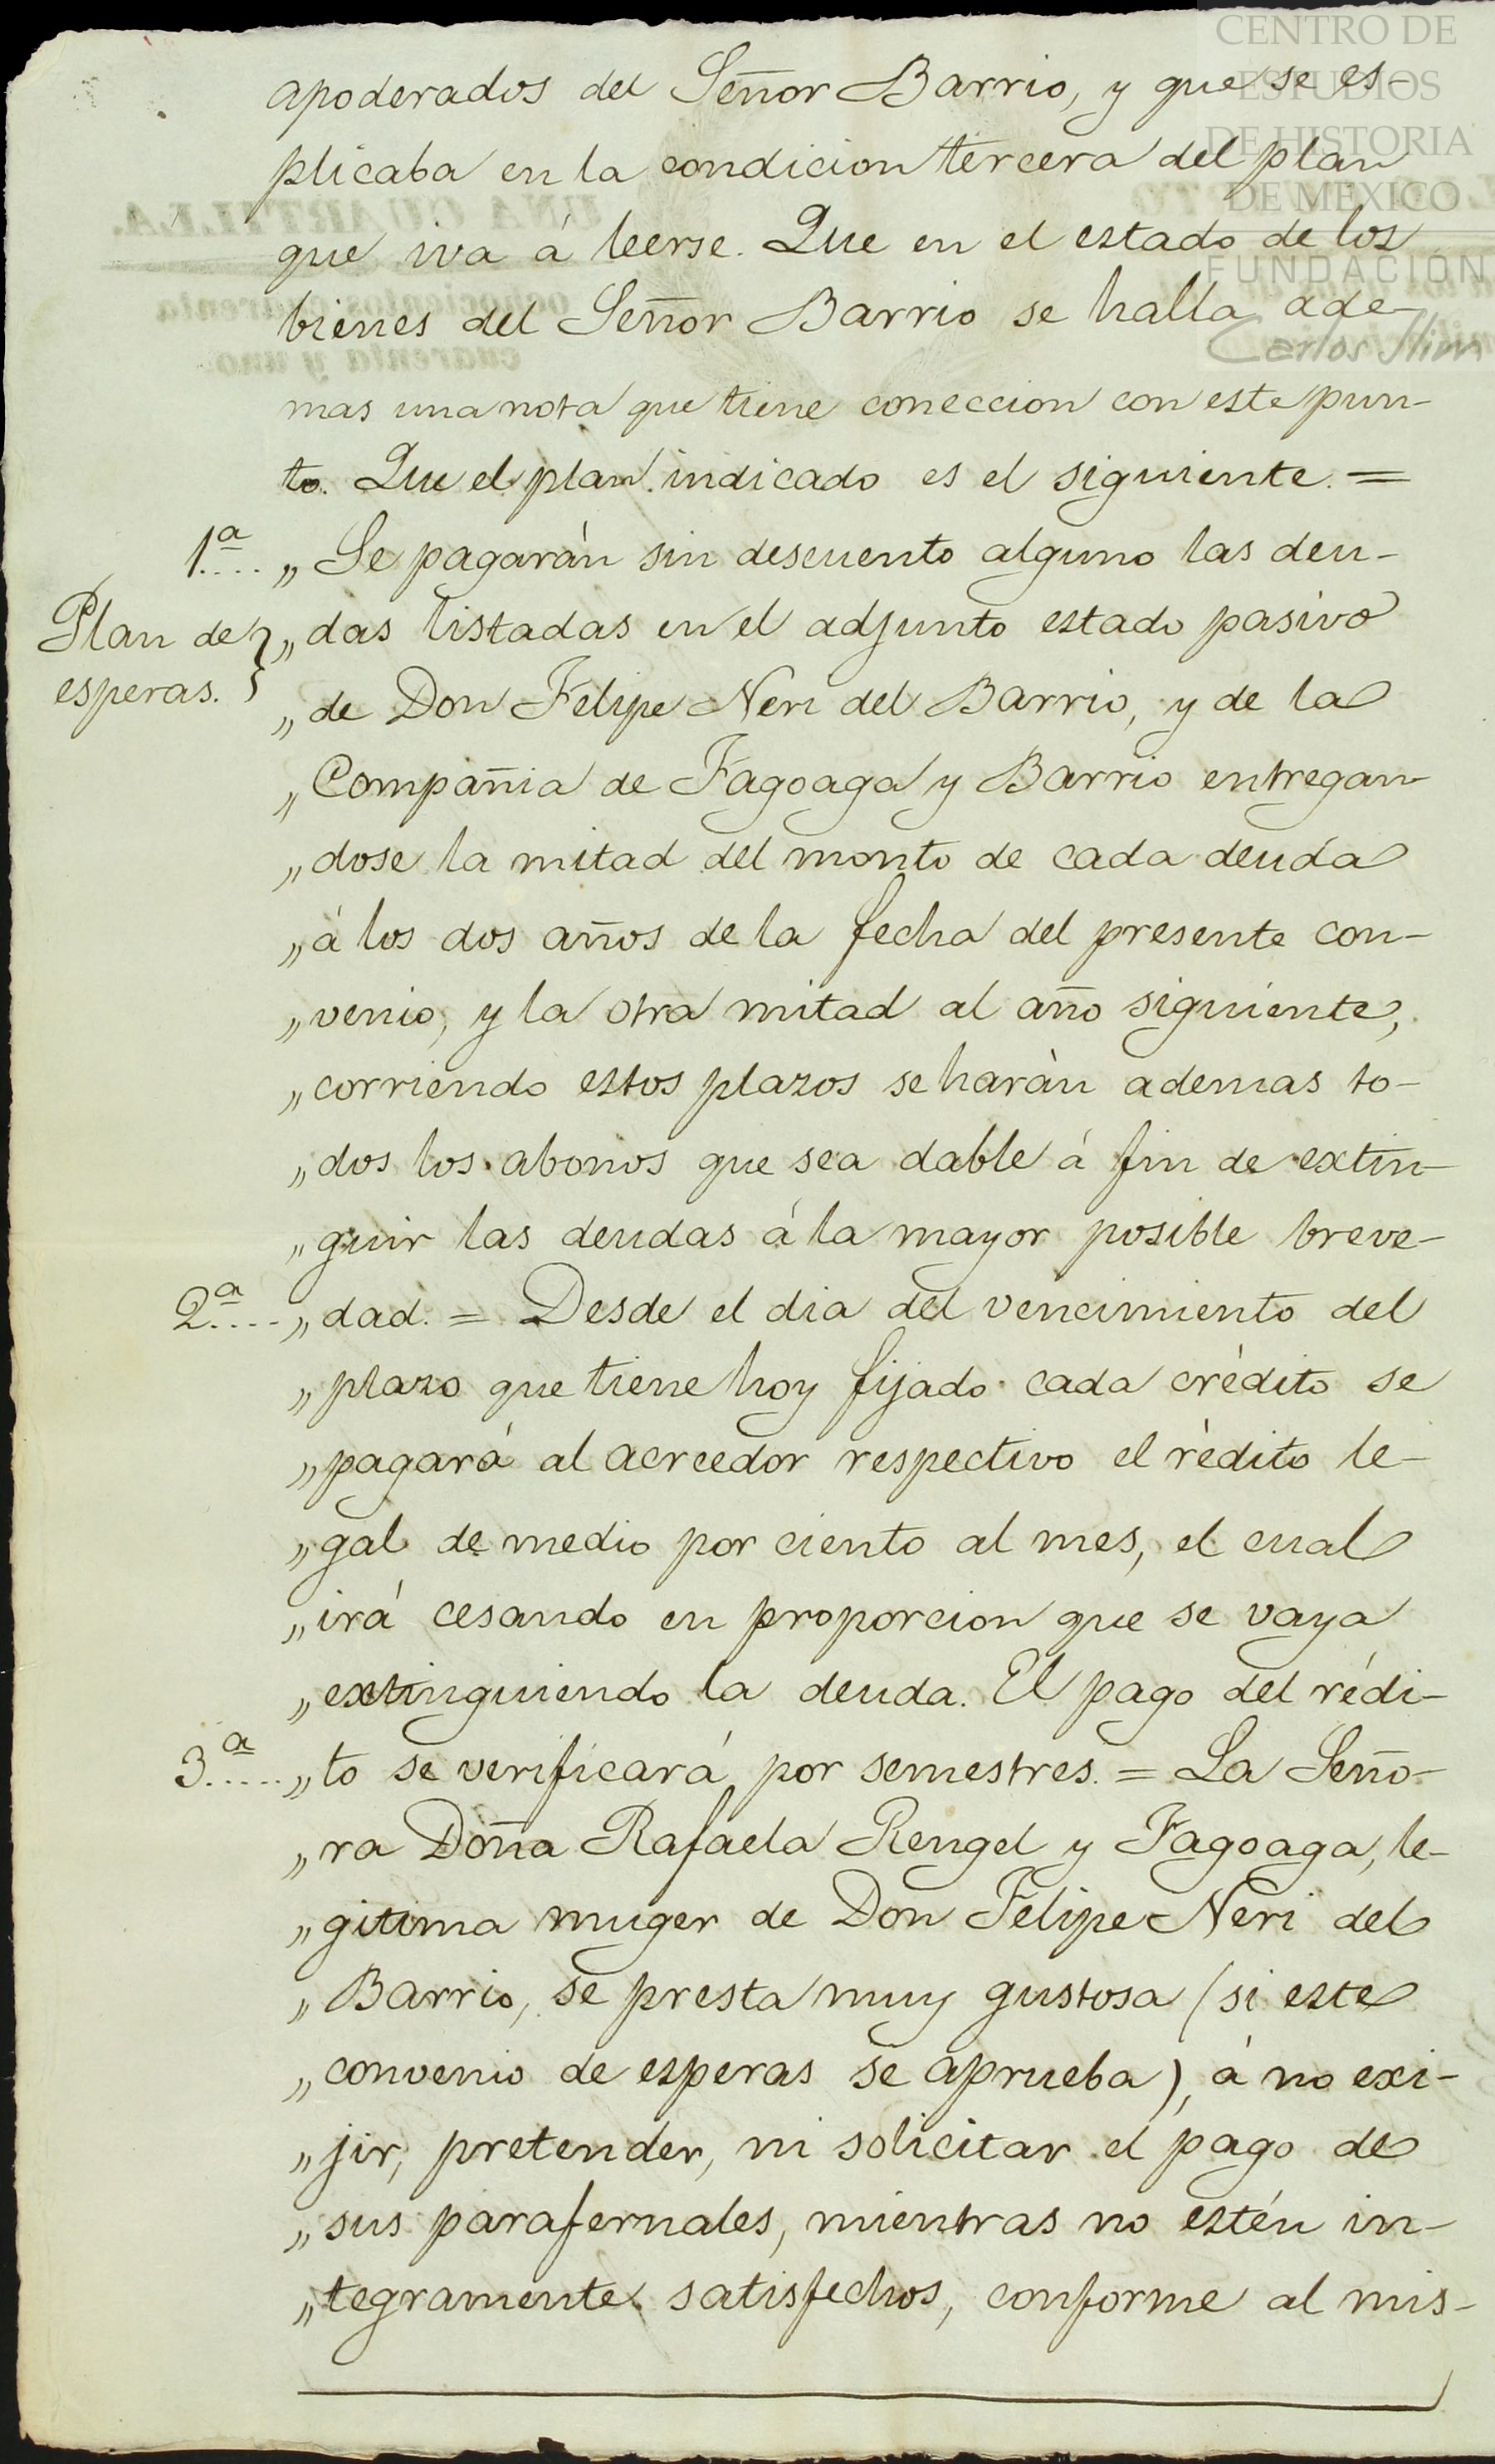 CENTRO DE
ESTUDIOS
DE HISTORIA
DE MEXICO
FUNDACIÓN
Carlos Slim
apoderados del Señor Barrio, y que se es-
plicaba en la condicion tercera del plan
que iva á leerse. Que en el estado de los
bienes del Señor Barrio se halla ade-
mas una nota que tiene coneccion con este pun-
to. Que el plan indicado es el siguiente. =
1ª.... „ Se pagarán sin descuento alguno las deu-
Plan de „ das listadas en el adjunto estado pasivo
esperas. „ de Don Felipe Neri del Barrio, y de la
„ Compañia de Fagoaga y Barrio entregan-
„ dose la mitad del monto de cada deuda
„ á los dos años de la fecha del presente con-
„ venio, y la otra mitad al año siguiente,
„ corriendo estos plazos se haràn ademas to-
„ dos los abonos que sea dable á fin de extin-
„ guir las deudas á la mayor posible breve-
2ª.... „ dad. = Desde el dia del vencimiento del
„ plazo que tiene hoy fijado cada crédito se
„ pagará al acreedor respectivo el rèdito le-
„ gal de medio por ciento al mes, el cual
„ irá cesando en proporcion que se vaya
„ extinguiendo la deuda. El pago del rédi-
3ª..... „ to se verificará por semestres. = La Seño-
„ ra Doña Rafaela Rengel y Fagoaga, le-
„ gitima muger de Don Felipe Neri del
„ Barrio, se presta muy gustosa (si este
„ convenio de esperas se aprueba), á no exi-
„ jir, pretender, ni solicitar el pago de
„ sus parafernales, mientras no estén in-
„ tegramente satisfechos, conforme al mis-